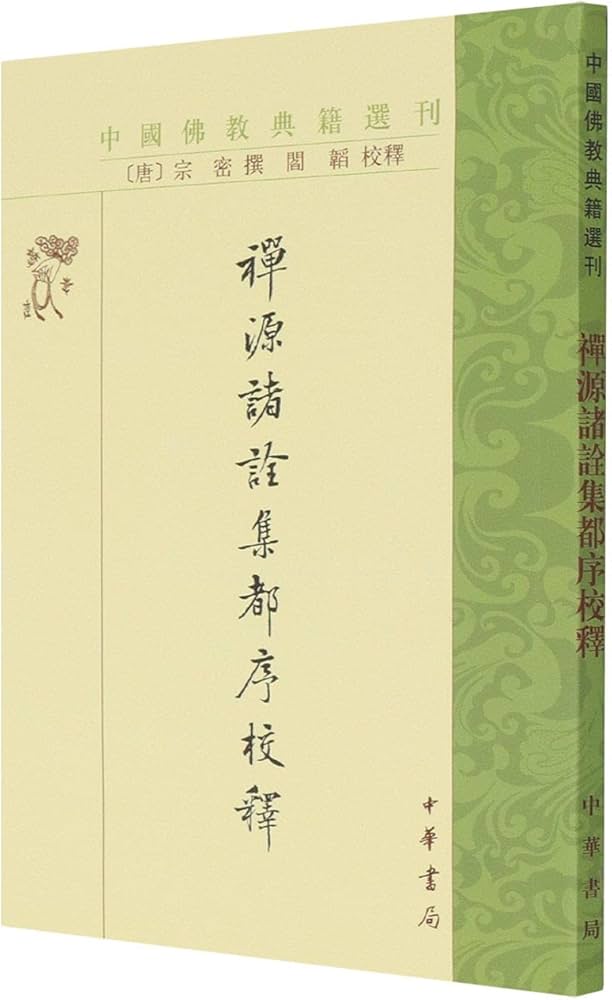 中國佛教典籍選刊
〔唐〕宗 密 撰 閻 韜 校釋
禪源諸詮集都序校釋
中華書局
中國佛教典籍選刊
禪源諸詮集都序校釋
中華書局